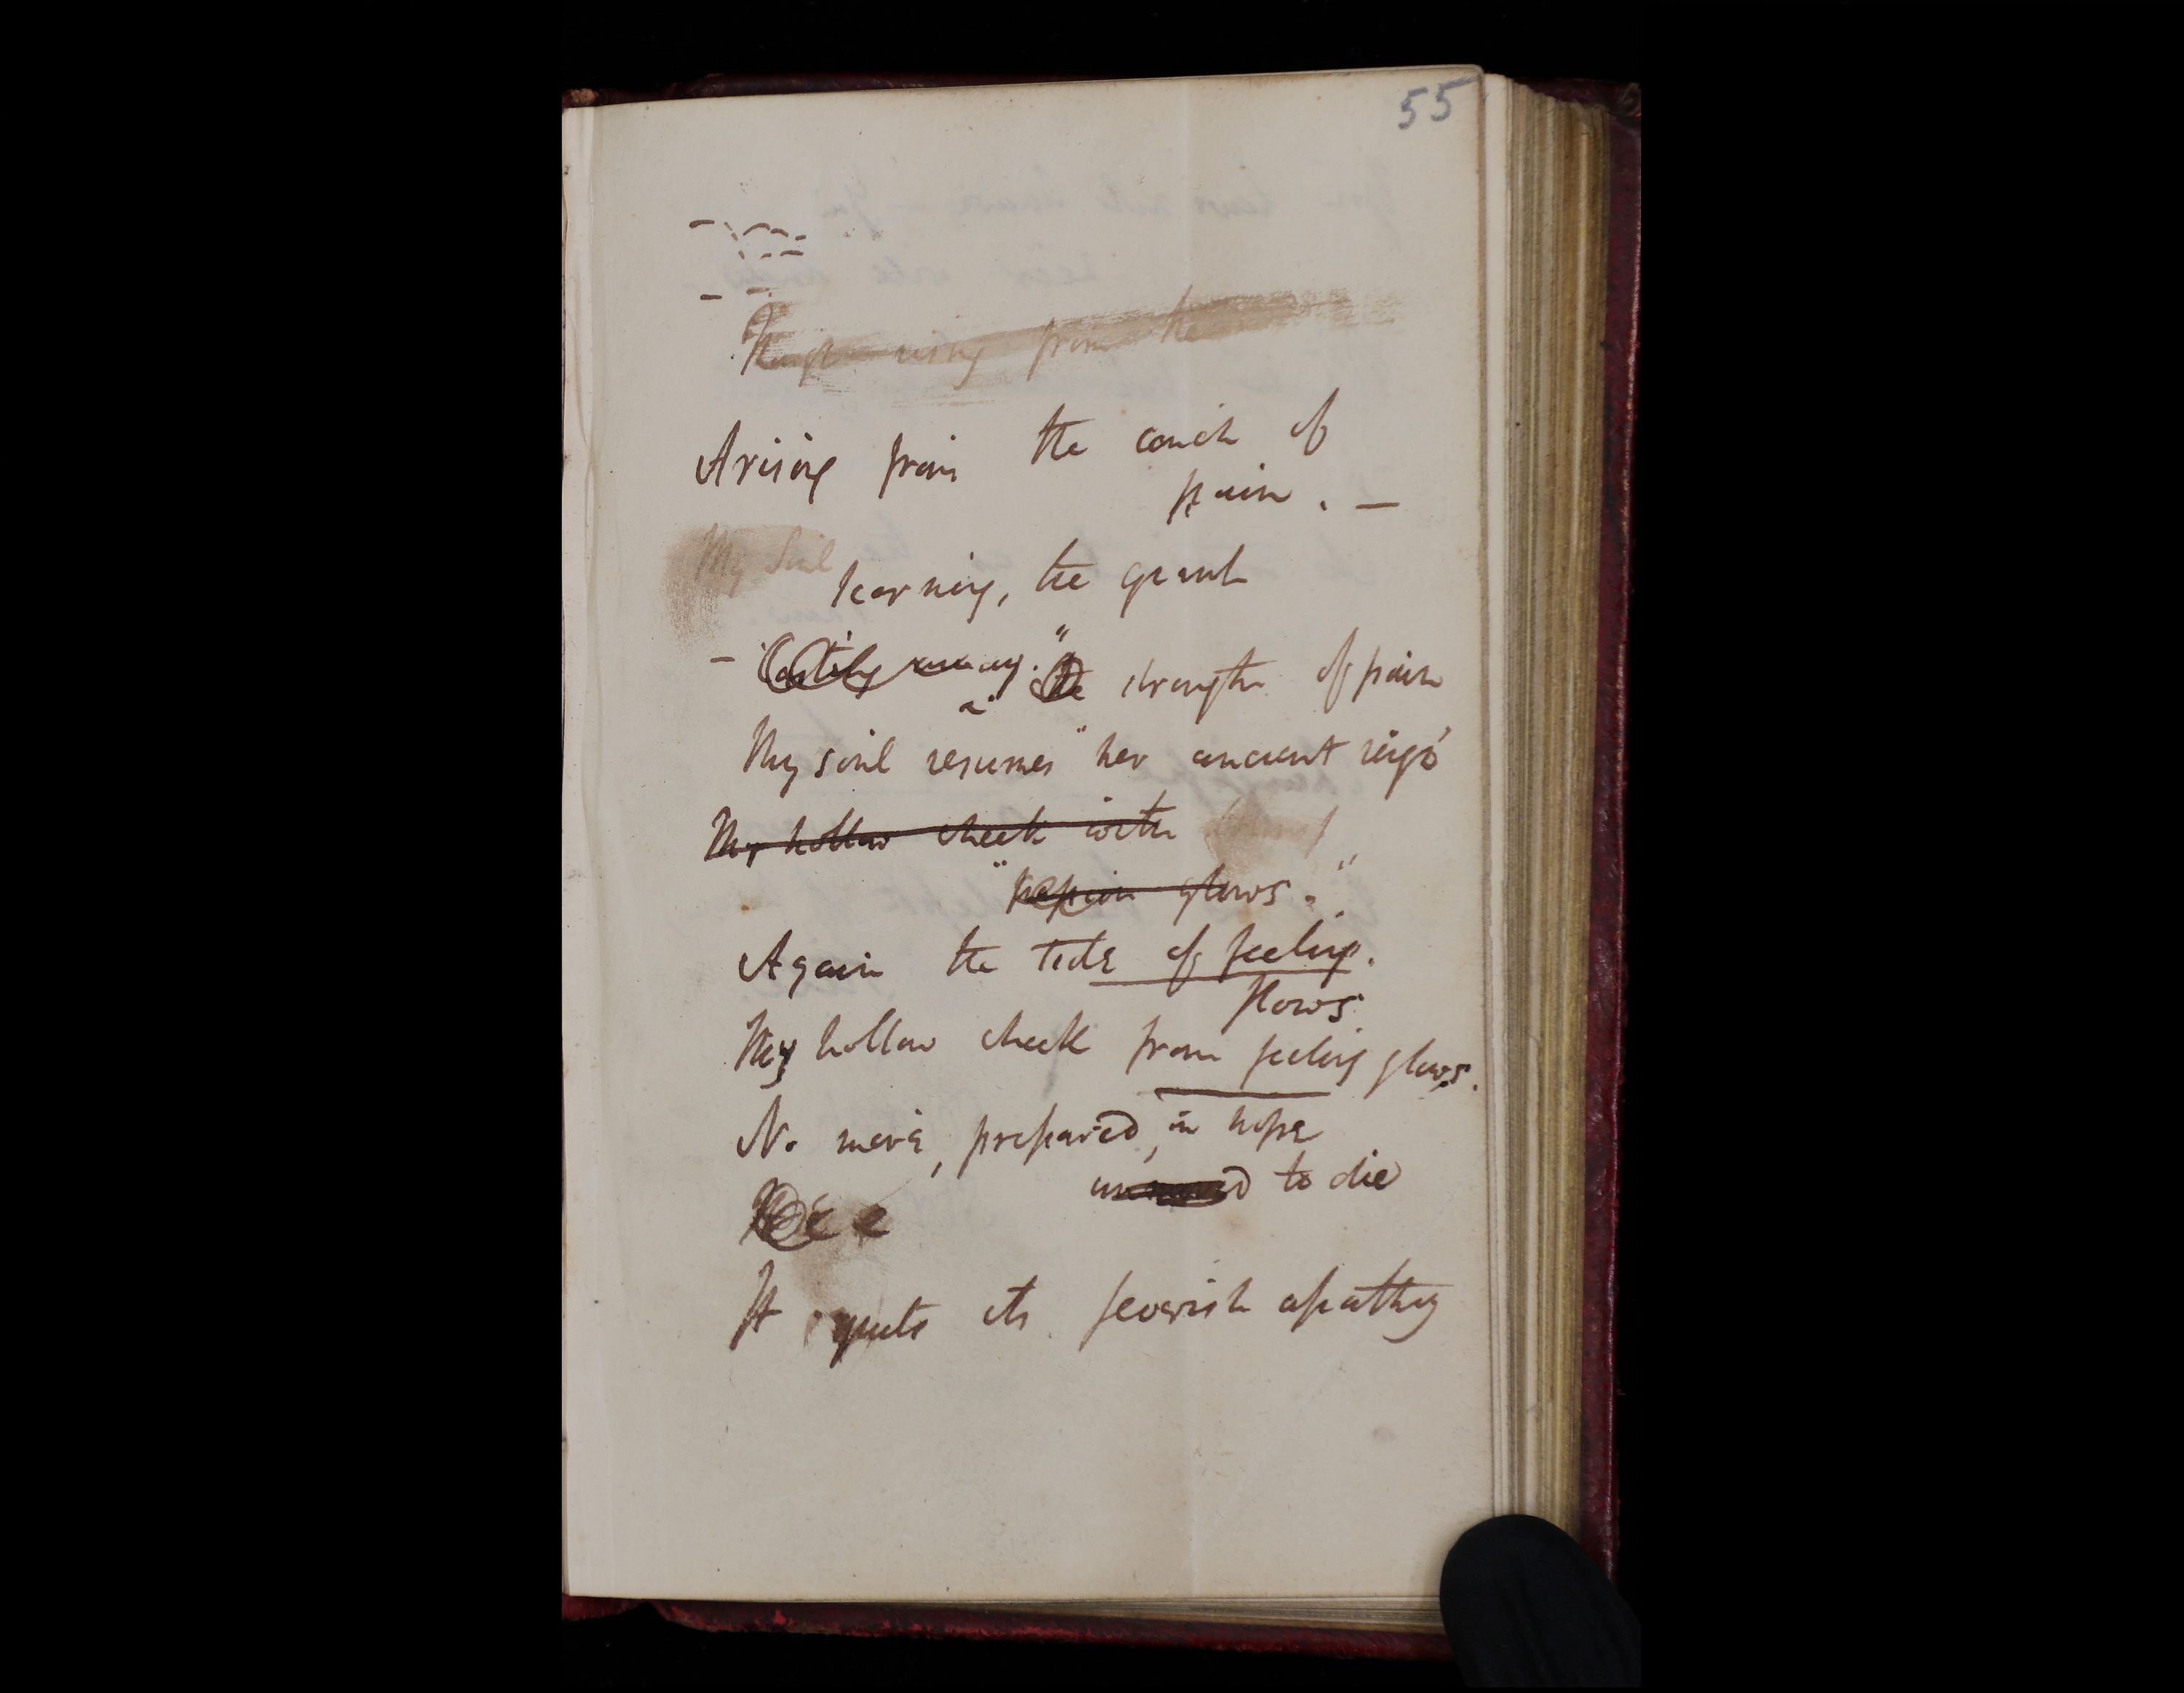 55
rising from the
Arising from the couch of
pain. —
My Soul
learning, the grand
— the strength of pain
My soul resumes her ancient reign
My hollow cheek with
"passion glows."
Again the tide of feeling.
flows.
My hollow cheek from feeling glows.
No more, prepared, in hope
to die
It quits its feverish apathy